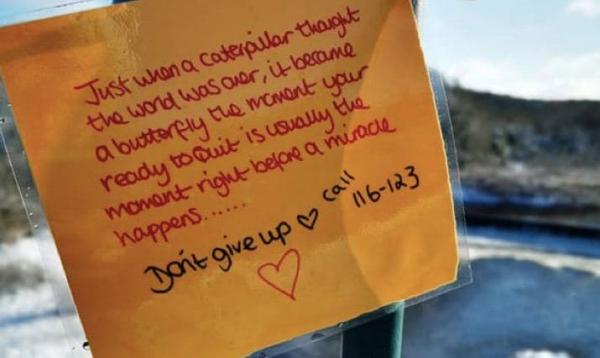 Just when a caterpillar thought
the world was over, it became
a butterfly the moment your
ready to Quit is usually the
moment right before a miracle
happens......
Don't give up ♡ call
116-123
♡